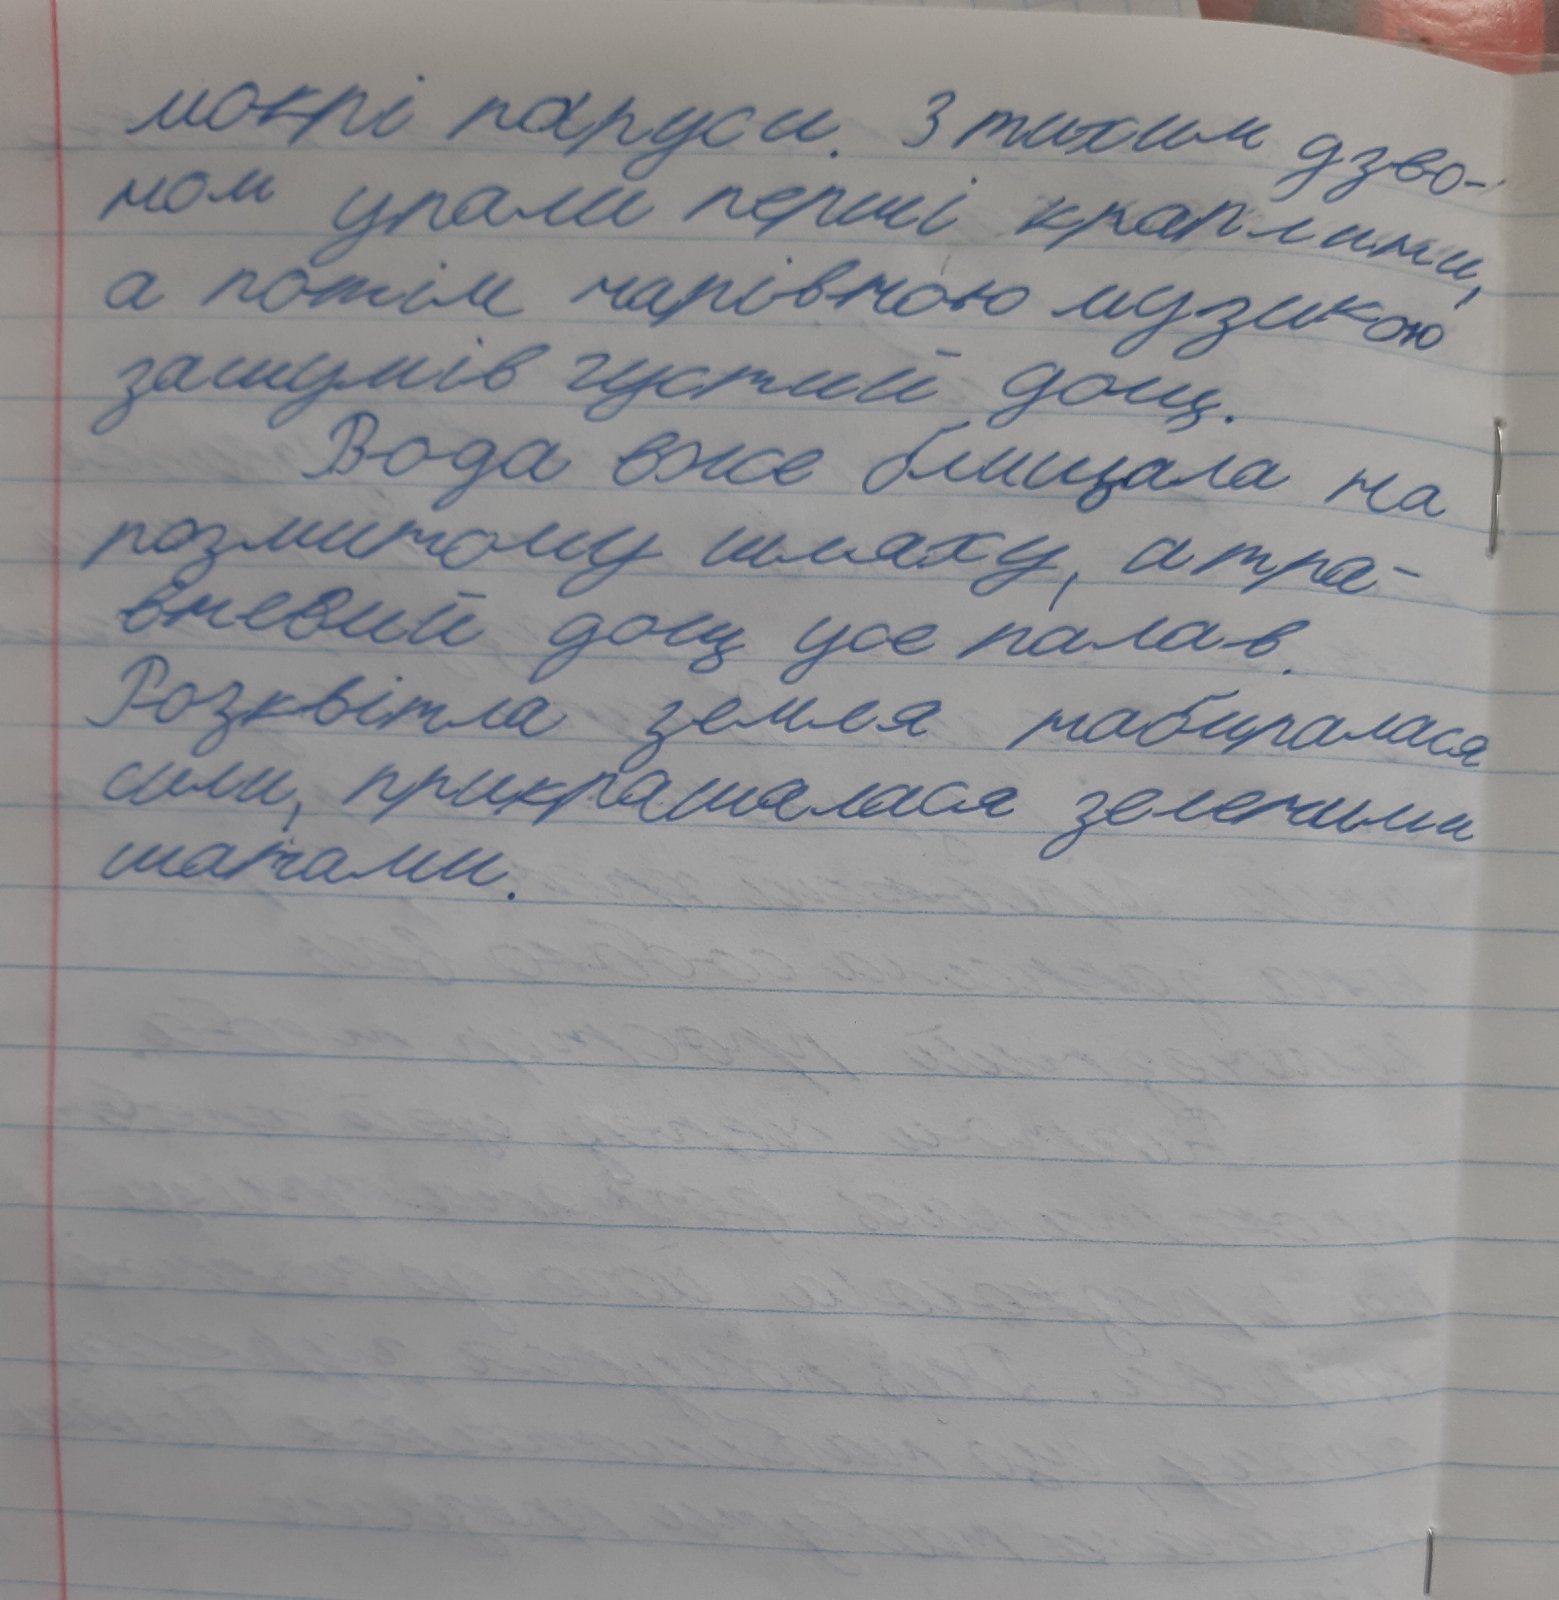 мокрі паруси. З тихим дзво-
ном упали перші краплини,
а потім чарівною музикою
зашумів густий дощ.
Вода вже блищала на
розмитому шляху, а тра-
вневий дощ усе палав.
Розквітла земля набиралася
сили, прикрашалася зеленими
шатами.